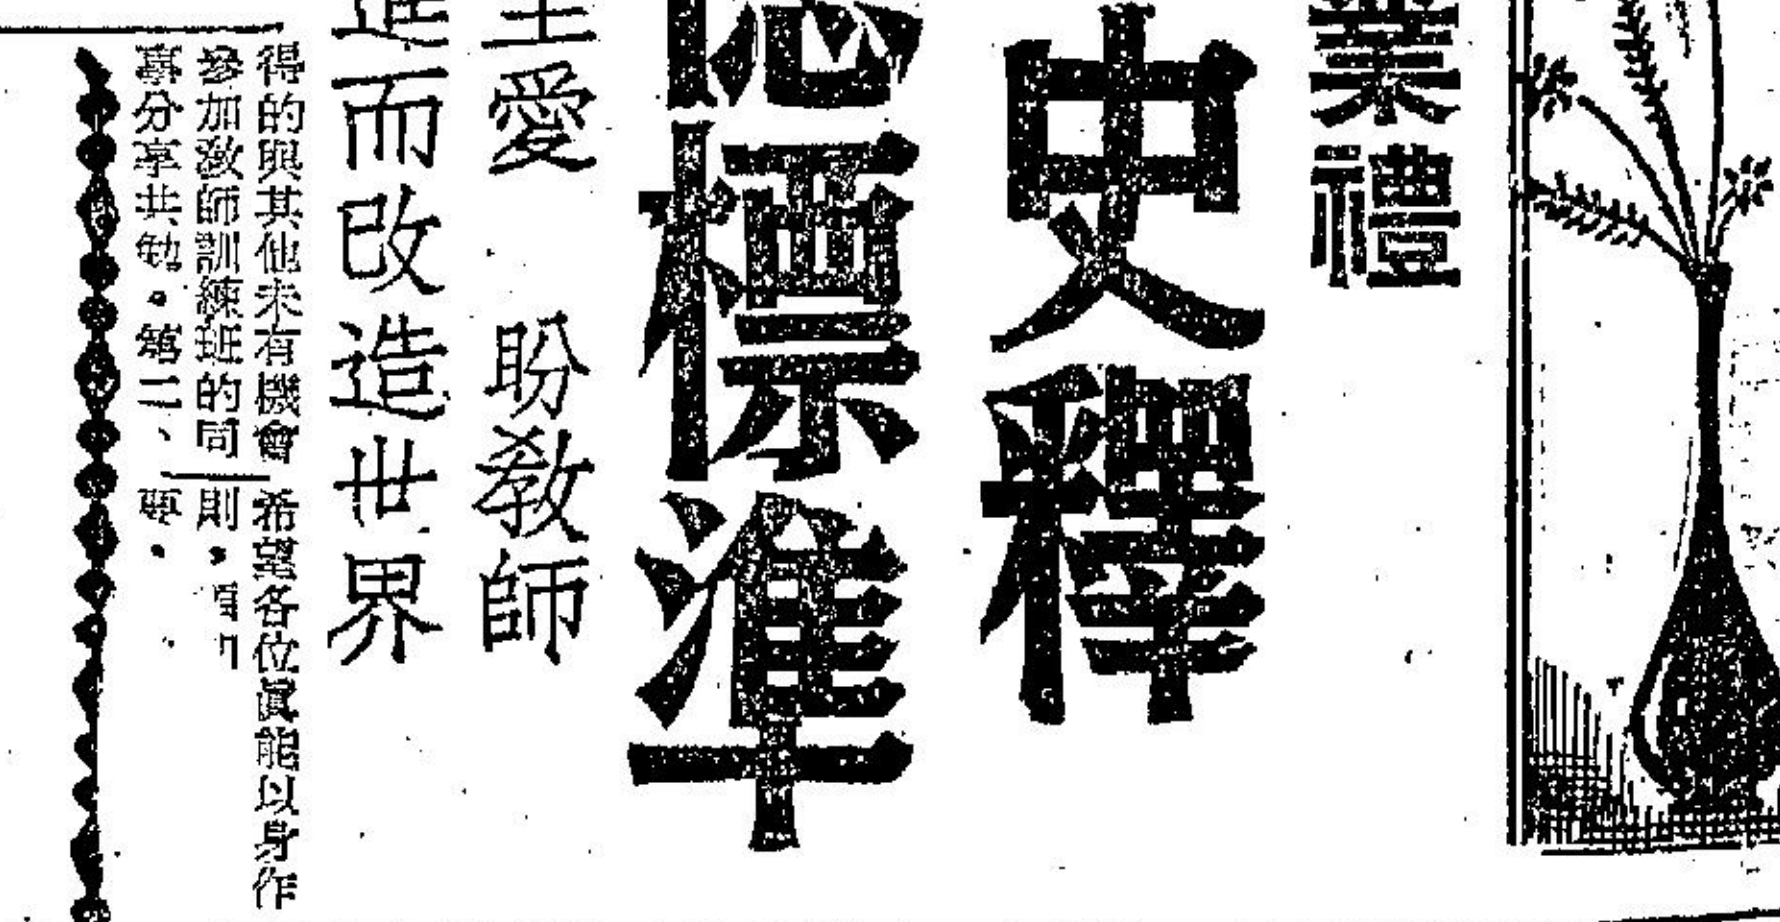 業禮
史釋
標準
愛 盼教師
進而改造世界
得的與其他未有機會
參加教師訓練班的同
事分享共勉。第二、
希望各位眞能以身作
則。
要。